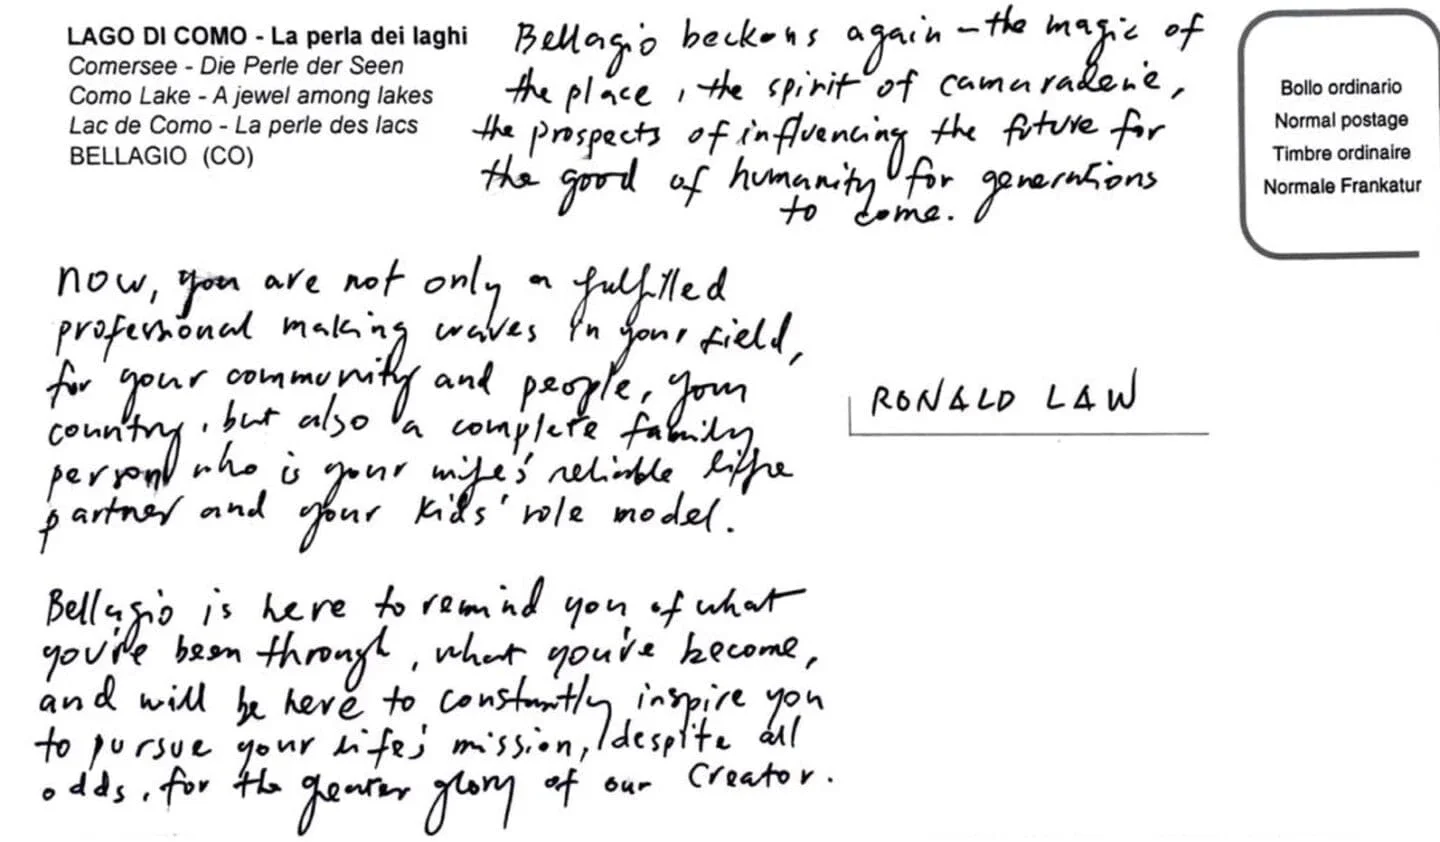 LAGO DI COMO - La perla dei laghi
Comersee - Die Perle der Seen
Como Lake - A jewel among lakes
Lac de Como - La perle des lacs
BELLAGIO (CO)
Bellagio beckons again - the magic of
the place, the spirit of camaraderie,
the prospects of influencing the future for
the good of humanity for generations
to come.
Bollo ordinario
Normal postage
Timbre ordinaire
Normale Frankatur
Now, you are not only a fulfilled
professional making waves in your field,
for your community and people, your
country, but also a complete family
person who is your wife's reliable life
partner and your kids' role model.
RONALD LAW
Bellagio is here to remind you of what
you've been through, what you've become,
and will be here to constantly inspire you
to pursue your life's mission, despite all
odds, for the greater glory of our Creator.